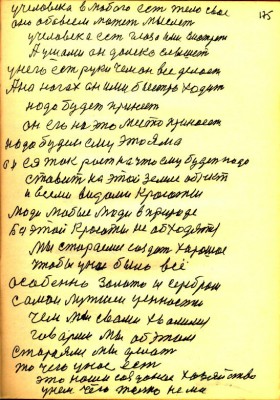 175
учеловека влюбого ест тело свое
оно обовсем может мыслет
учеловека ест глаза ими смотрет
А ушами он далеко слышет
унего ест руки чемон все делает
Ана ногах он ими быстро ходит
надо будет принесет
он его на это место принесет
надо будет ему
ся так рост качто ему будет надо
ставит на этой Земле
ивсеми видами Красоты
люди любые люди вприроде
этой Красоты не обходят
мы стараемся создат хорошое
чтобы унас было всё
особенно Золото и серебром
самой лутшей ценности
чем мы свами хвалимся
говарим мы об этом
стараемс мы делат
то чего унас ест
это наше созданое хозяйство
унем чего только нема